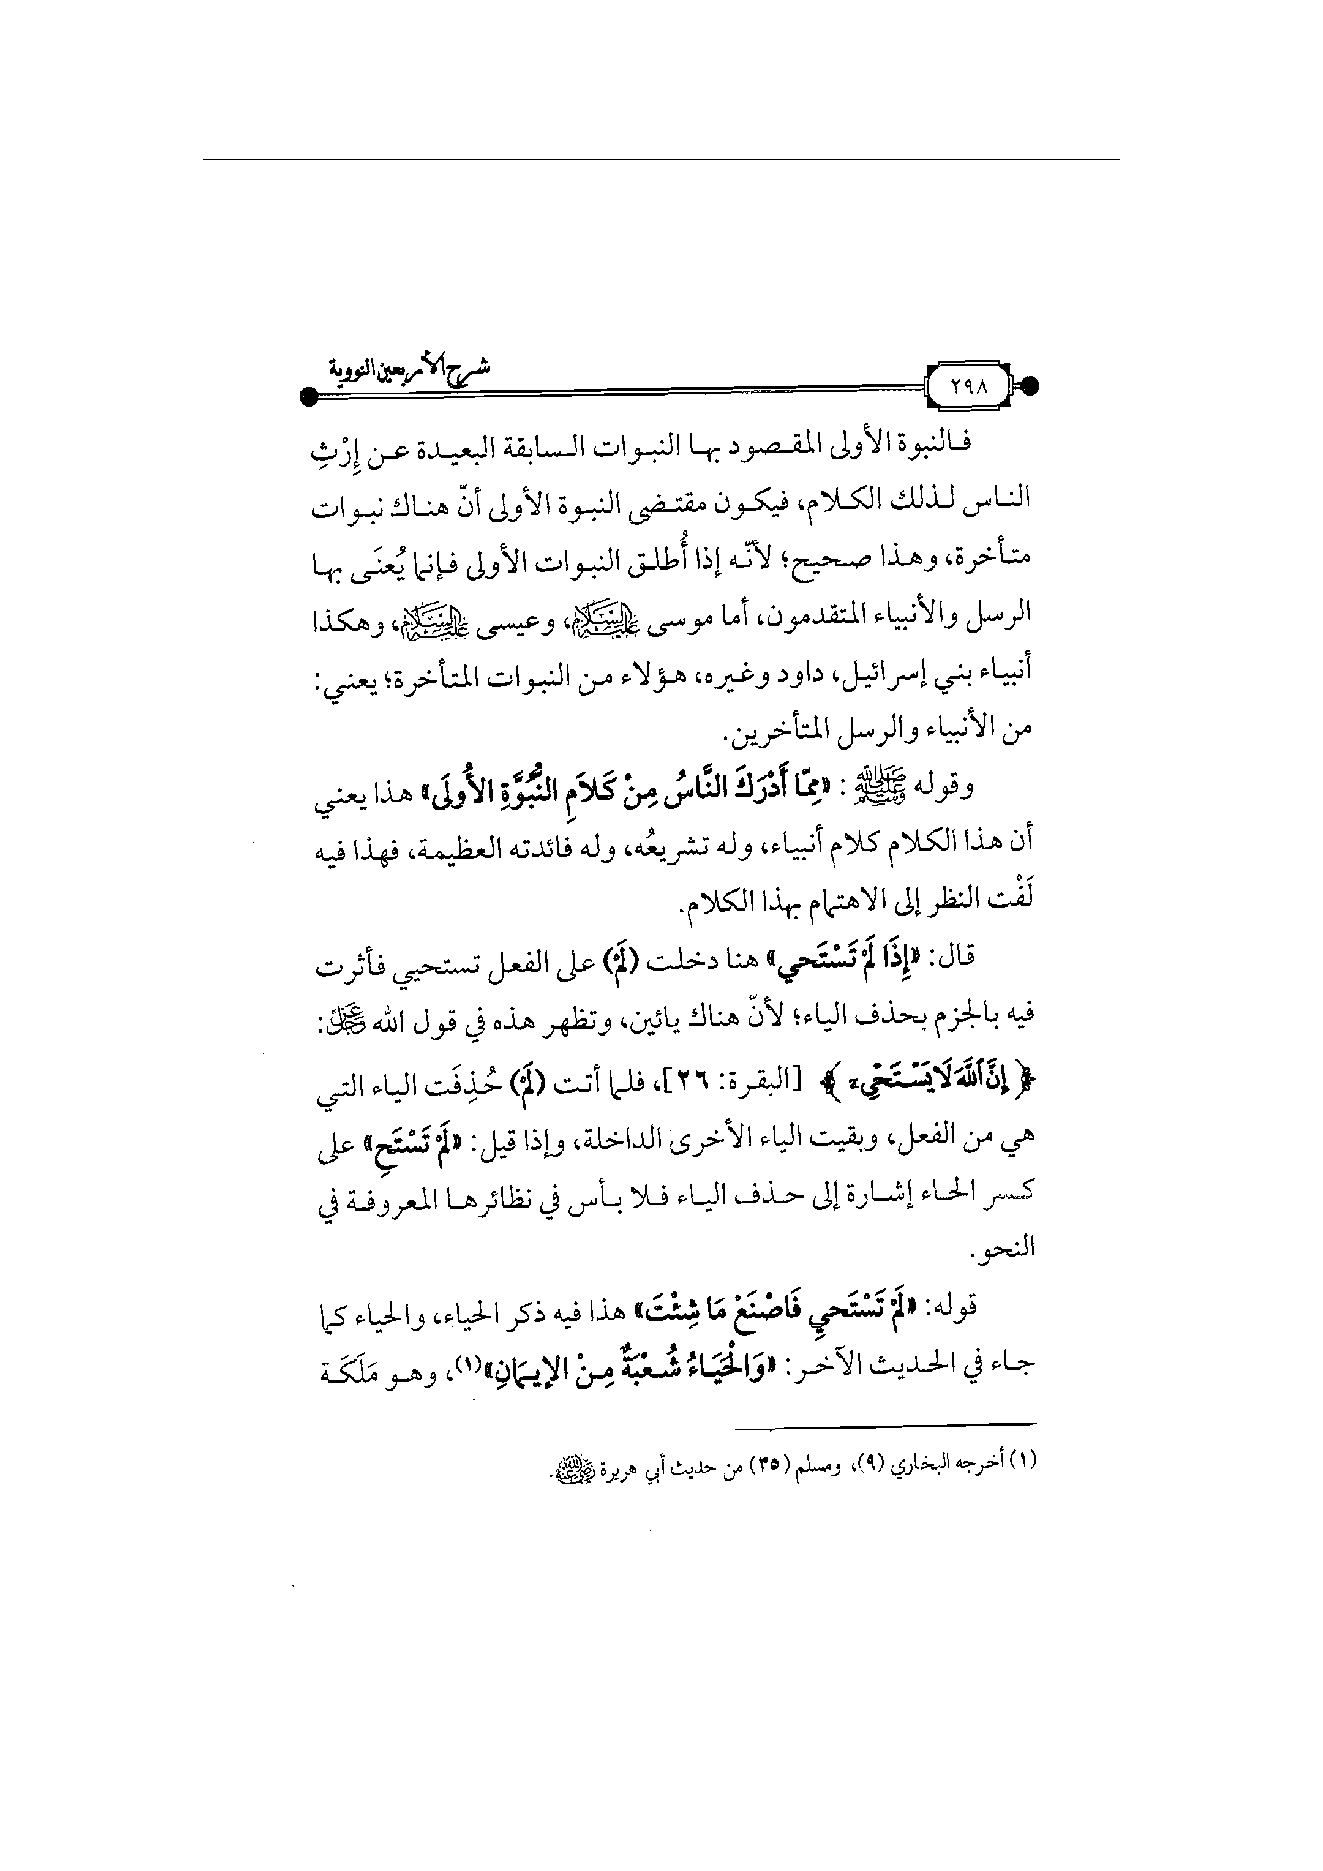 شرح الأربعين النووية
٢٩٨
فالنبوة الأولى المقصود بها النبوات السابقة البعيدة عن إِرْثِ
الناس لذلك الكلام، فيكون مقتضى النبوة الأولى أنّ هناك نبوات
متأخرة، وهذا صحيح؛ لأنّه إذا أُطلق النبوات الأولى فإنما يُعنَى بها
الرسل والأنبياء المتقدمون، أما موسى عليه السلام، وعيسى عليه السلام، وهكذا
أنبياء بني إسرائيل، داود وغيره، هؤلاء من النبوات المتأخرة؛ يعني:
من الأنبياء والرسل المتأخرين.
وقوله ﷺ: «مِمَّا أَدْرَكَ النَّاسُ مِنْ كَلاَمِ النُّبُوَّةِ الأُولَى» هذا يعني
أن هذا الكلام كلام أنبياء، وله تشريعُه، وله فائدته العظيمة، فهذا فيه
لَفْت النظر إلى الاهتمام بهذا الكلام.
قال: «إِذَا لَمْ تَسْتَحي» هنا دخلت (لَمْ) على الفعل تستحيي فأثرت
فيه بالجزم بحذف الياء؛ لأنّ هناك يائين، وتظهر هذه في قول الله عز وجل:
﴿إِنَّ ٱللَّهَ لَا يَسْتَحْىِۦ﴾ [البقرة: ٢٦]، فلما أتت (لَمْ) حُذِفَت الياء التي
هي من الفعل، وبقيت الياء الأخرى الداخلة، وإذا قيل: «لَمْ تَسْتَحِ» على
كسر الحاء إشارة إلى حذف الياء فلا بأس في نظائرها المعروفة في
النحو.
قوله: «لَمْ تَسْتَحيِ فَاصْنَعْ مَا شِئْتَ» هذا فيه ذكر الحياء، والحياء كما
جاء في الحديث الآخر: «وَالْحَيَاءُ شُعْبَةٌ مِنْ الإِيمَانِ»(١)، وهو مَلَكَة
(١) أخرجه البخاري (٩)، ومسلم (٣٥) من حديث أبي هريرة رضي الله عنه.